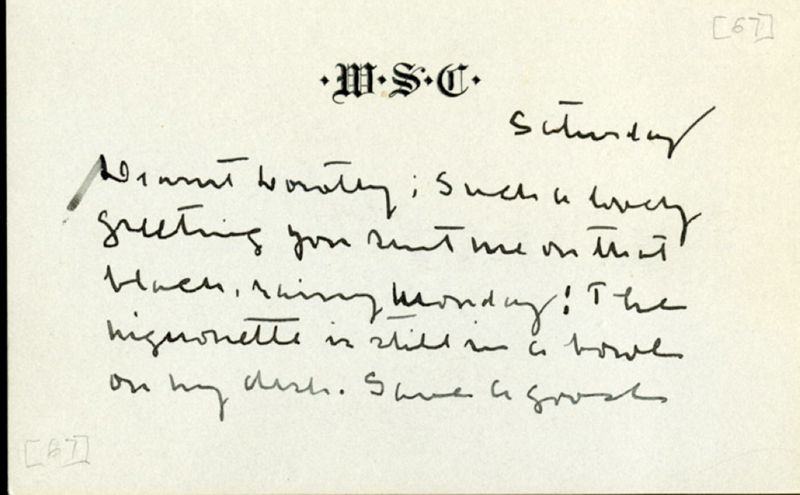 [67]
·W·S·C·
Saturday
Dearest Dorothy; Such a lovely
greeting you sent me on that
black, rainy Monday! The
mignonette is still in a bowl
on my desk. Save a good
[67]